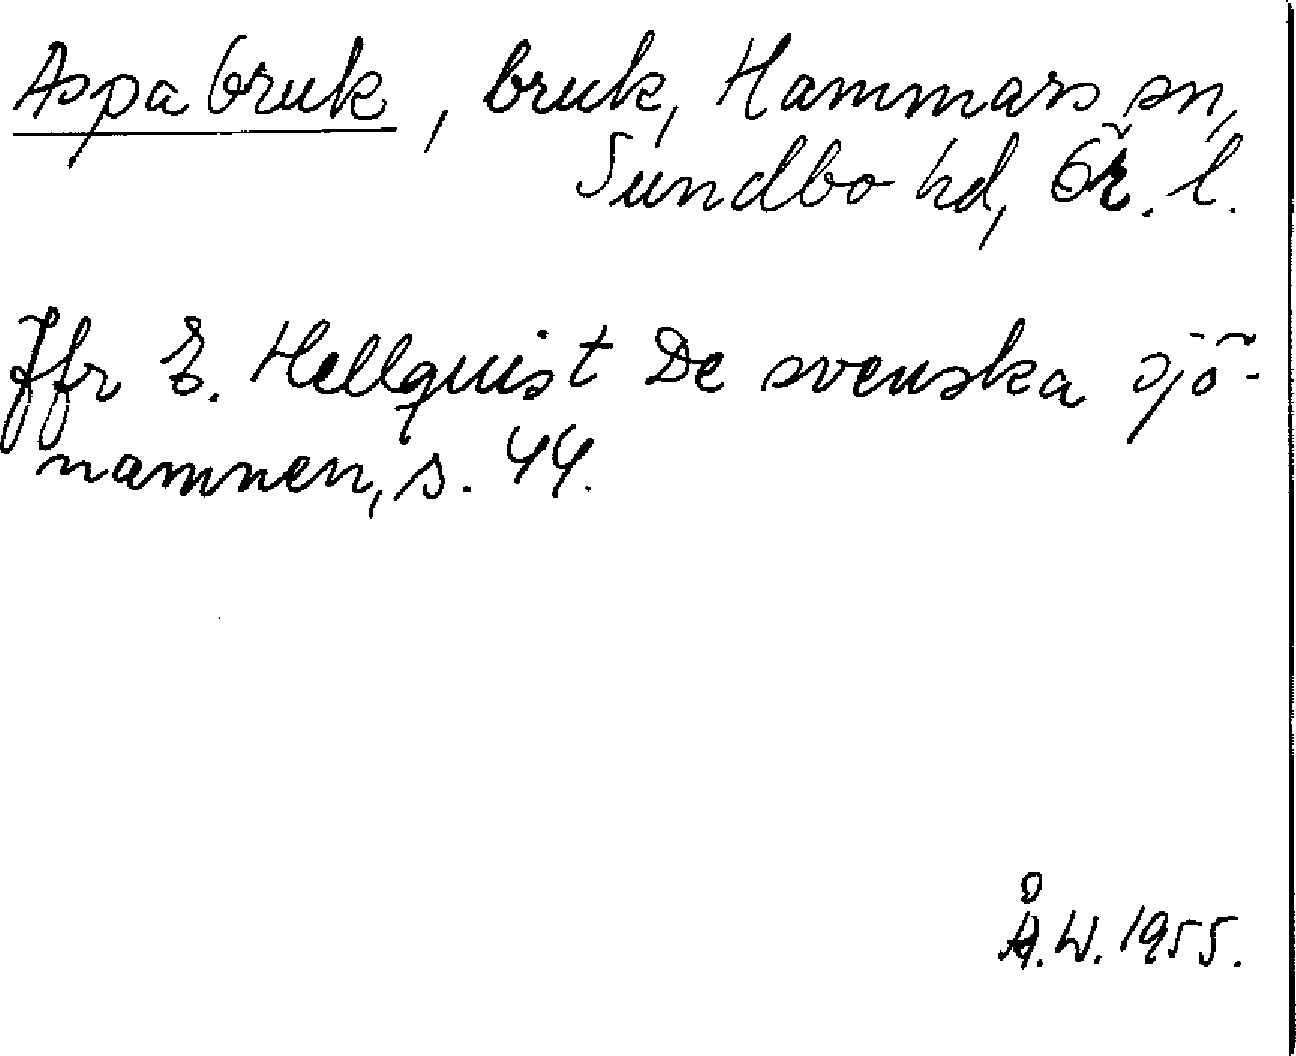 Aspa bruk, bruk, Hammars sn,
Sundbo hd, Ör. l.
Jfr E. Hellquist De svenska sjö-
namnen, s. 44.
Å.W. 1955.